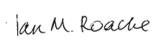 Ian M. Roache